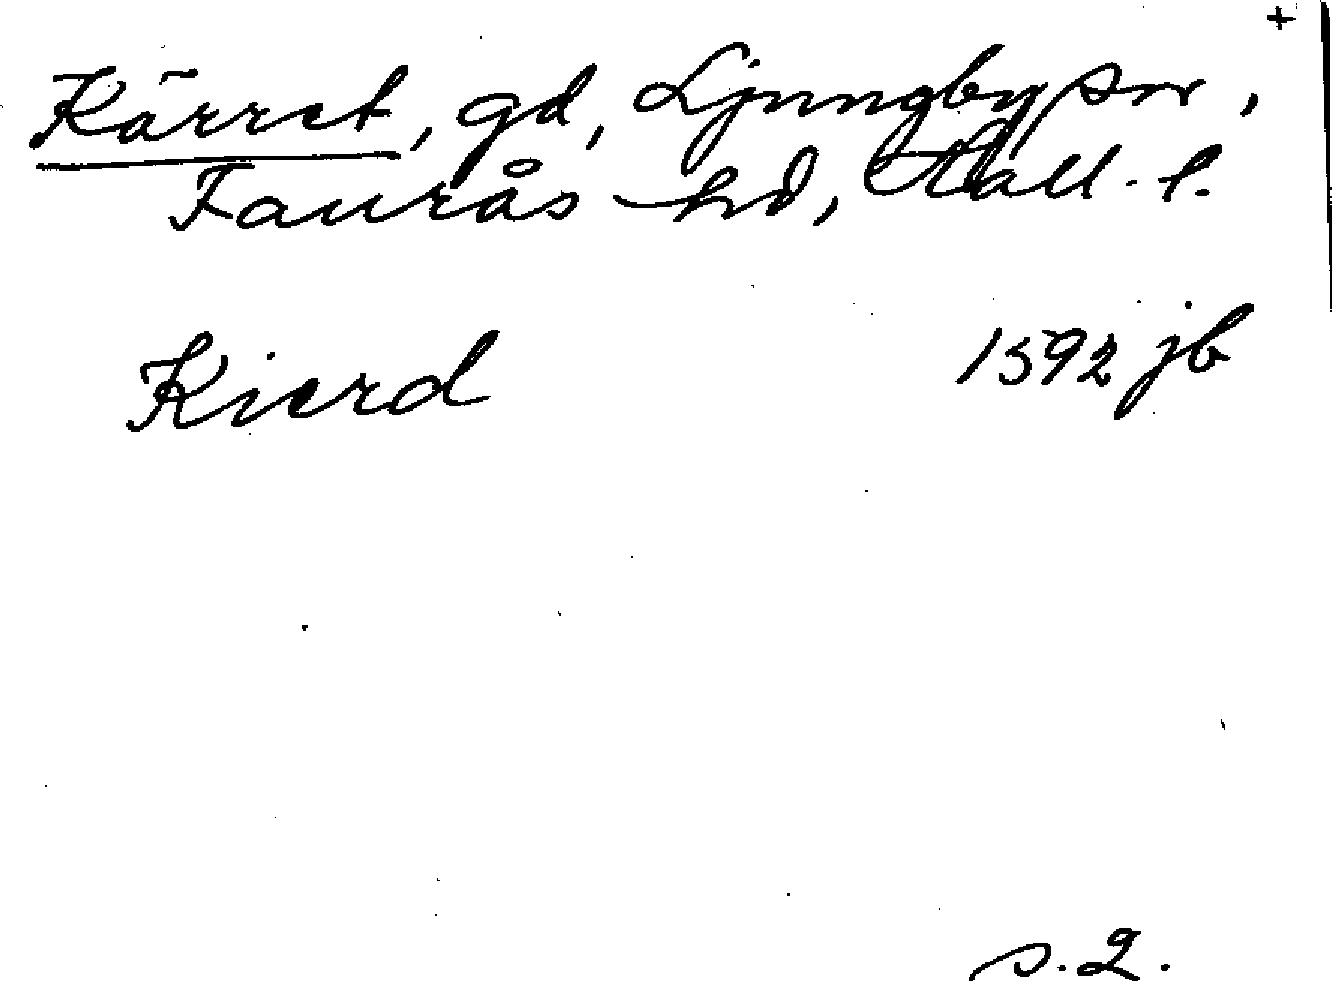 +
Kärret, gd, Ljungby sn,
Faurås hd, Hall. l.
Kierd 1592 jb
s. 2.